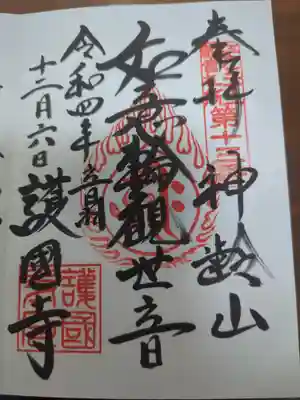 第十三
奉拝 神齢山
如意輪觀世音
令和四年
十二月六日
護國寺
護國